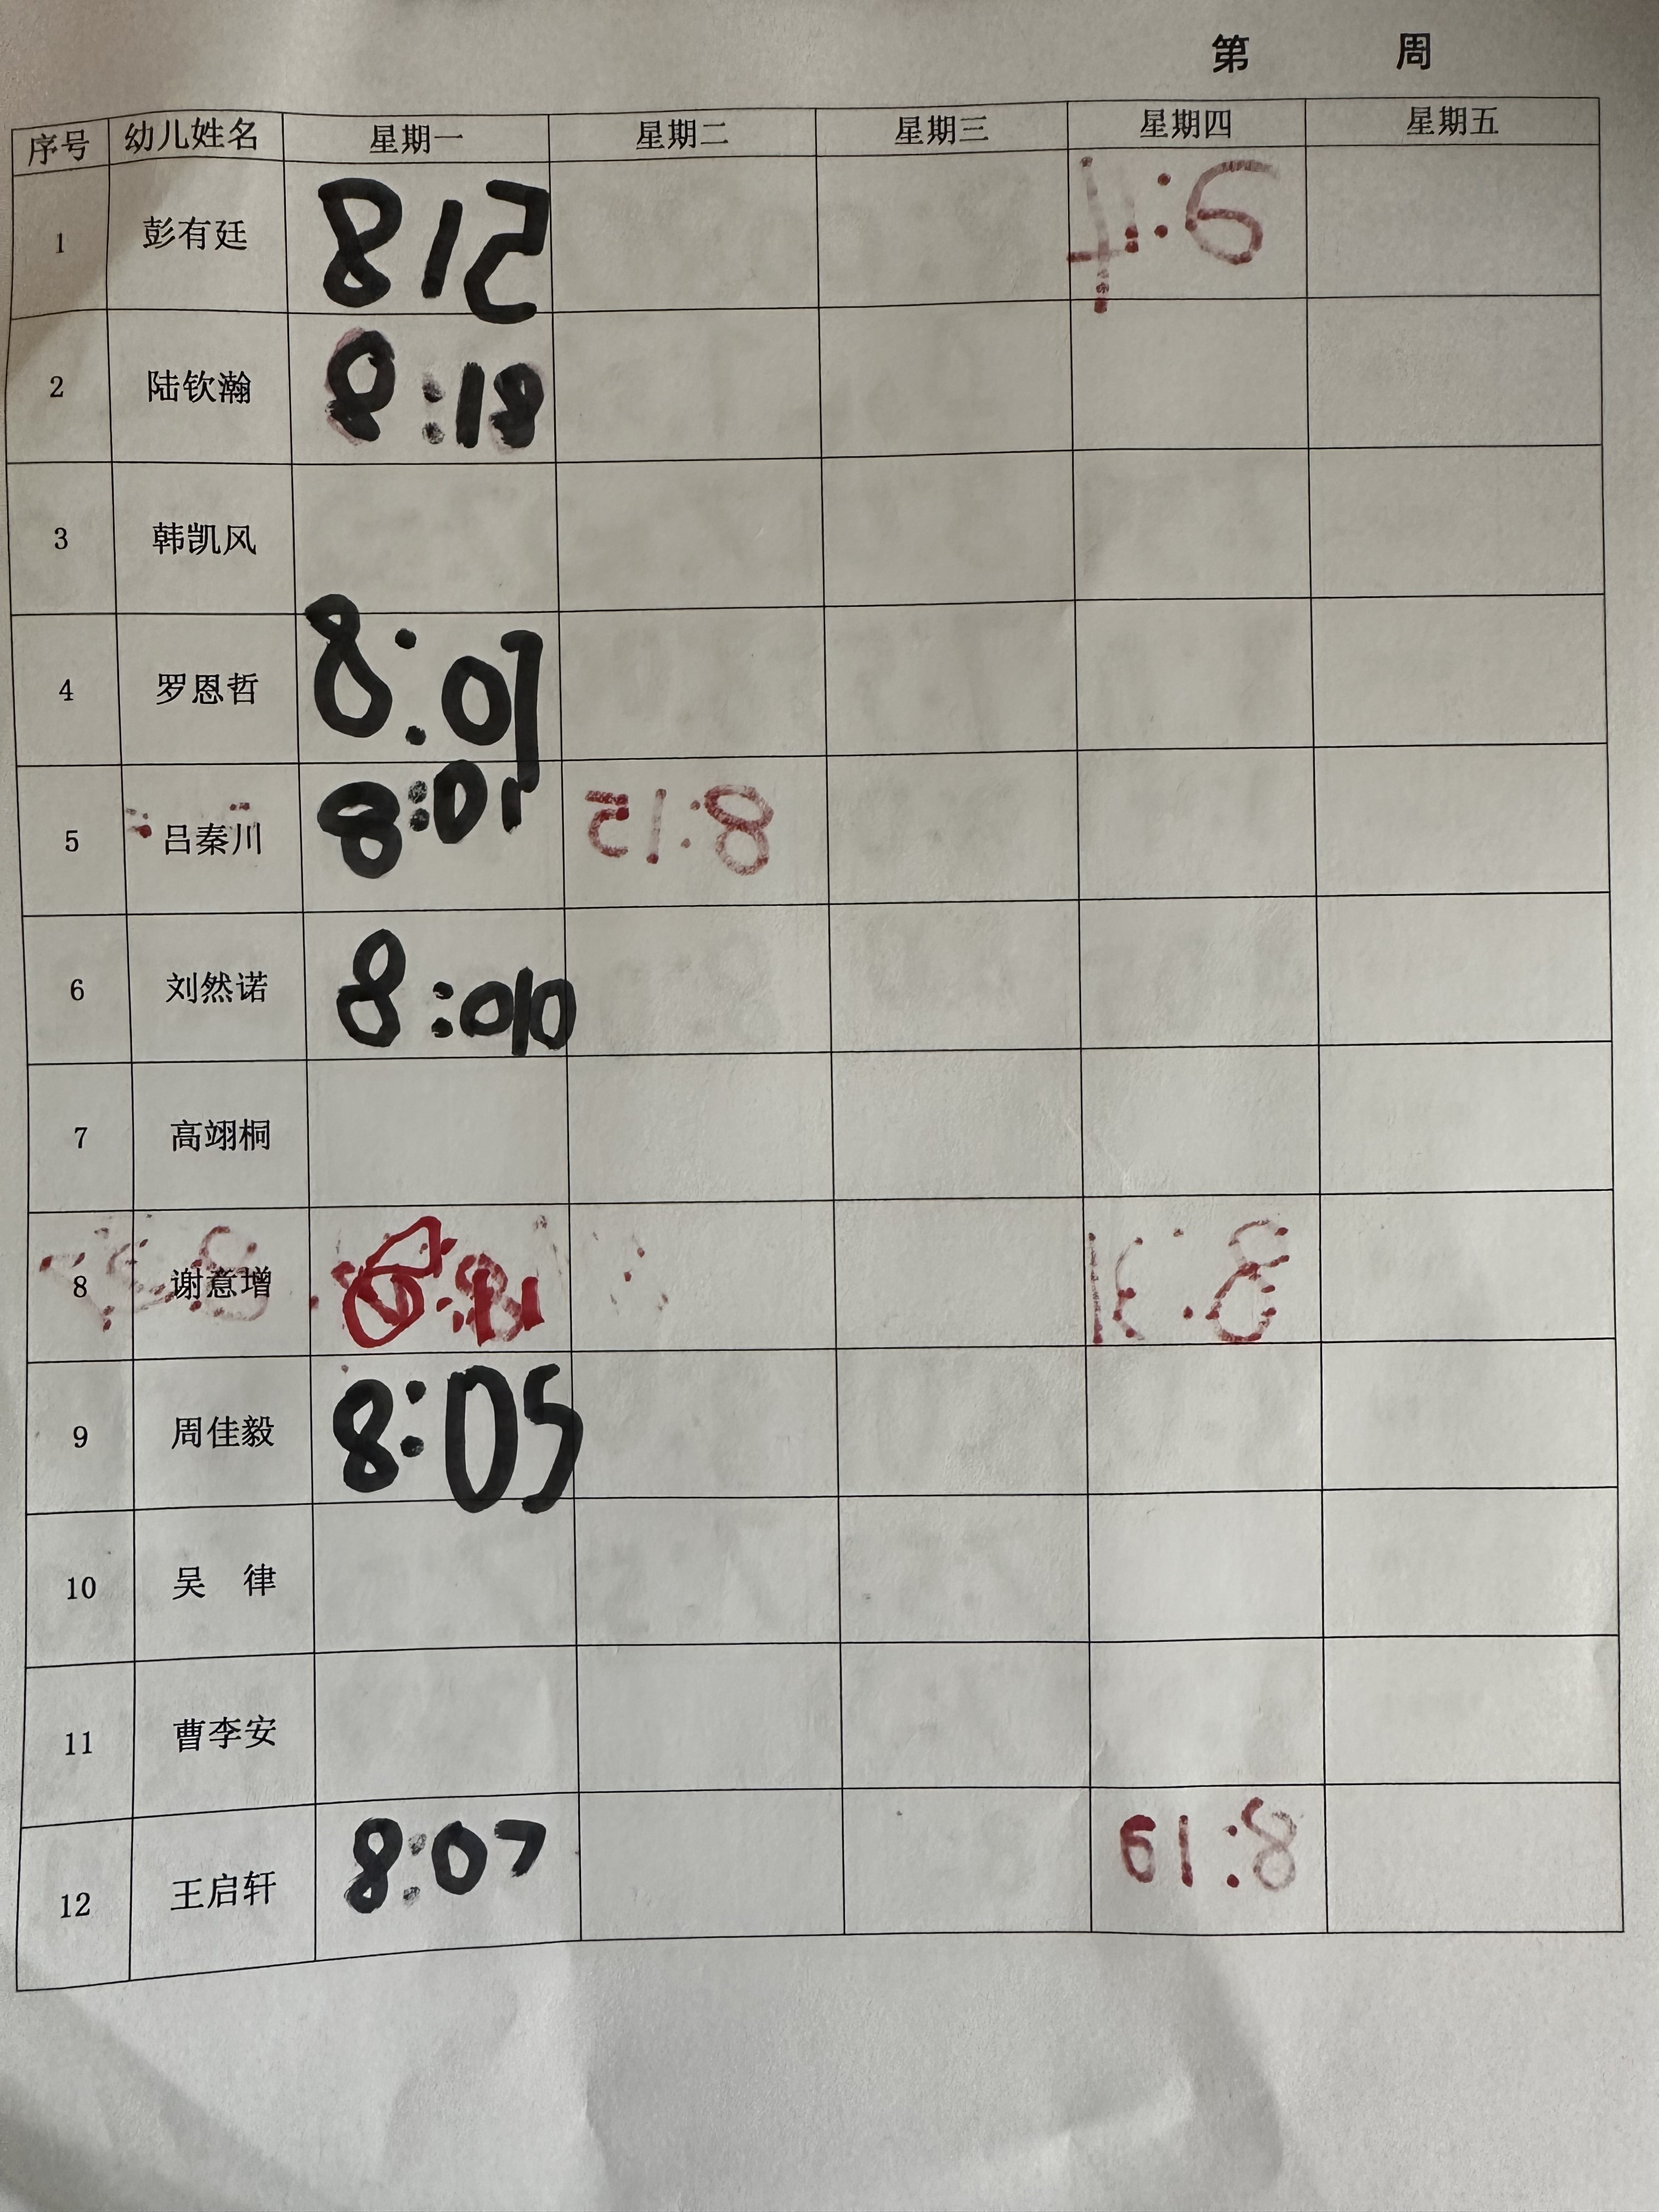 第 周
序号 幼儿姓名 星期一 星期二 星期三 星期四 星期五
1 彭有廷 812
2 陆钦瀚 8:18
3 韩凯风
4 罗恩哲 8:07
5 吕秦川 8:01
6 刘然诺 8:010
7 高翊桐
8 谢意增
9 周佳毅 8:05
10 吴 律
11 曹李安
12 王启轩 8:07